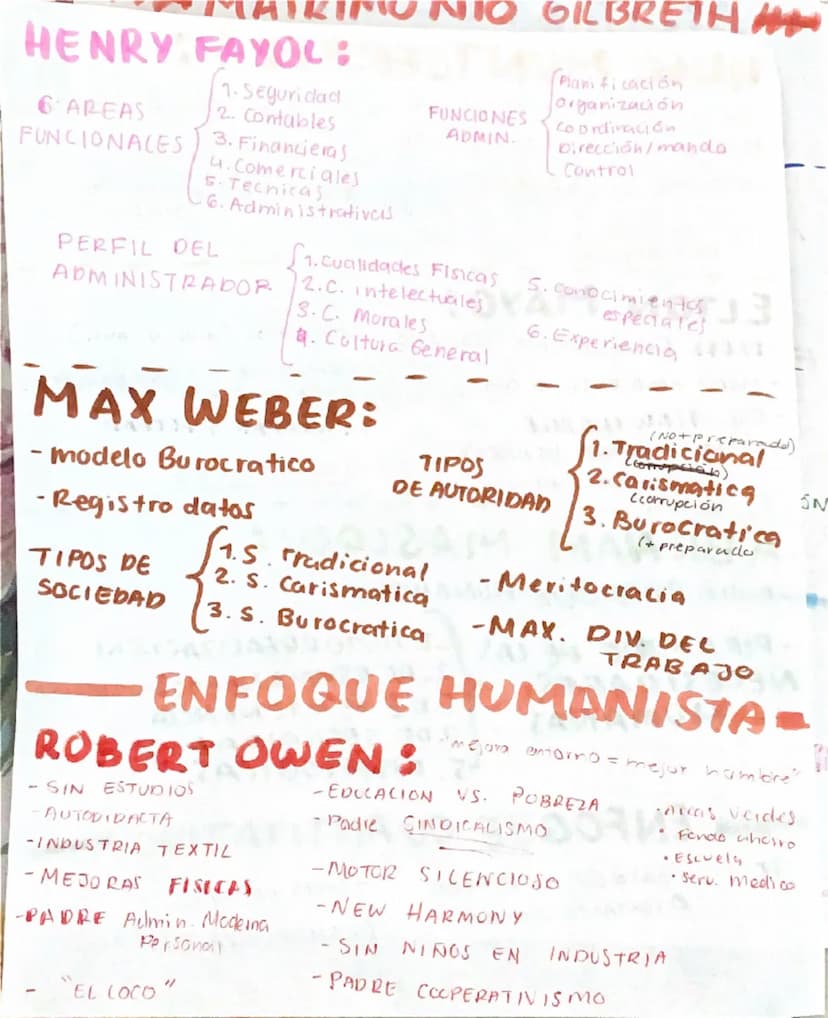 MATRIMONIO GILBRETH
HENRY FAYOL:
6 AREAS
FUNCIONALES
1. Seguridad
2. Contables
3. Financieras
4. Comerciales
5. Tecnicas
6. Administrativas
FUNCIONES
ADMIN.
Planificación
Organización
Coordinación
Dirección/mando
Control
PERFIL DEL
ADMINISTRADOR
1. Cualidades Fisicas
2. C. intelectuales
3. C. Morales
4. Cultura General
5. Conocimientos
especiales
6. Experiencia
MAX WEBER:
- modelo Burocratico
- Registro datos
TIPOS
DE AUTORIDAD
(No + preparado)
1. Tradicional
2. Carismatica
(corrupción
3. Burocratica
(+ preparado
TIPOS DE
SOCIEDAD
1. S. Tradicional
2. S. Carismatica
3. S. Burocratica
- Meritocracia
- MAX. DIV. DEL
TRABAJO
ENFOQUE HUMANISTA
ROBERT OWEN:
"mejora entorno = mejor hombre"
- SIN ESTUDIOS
- AUTODIDACTA
- INDUSTRIA TEXTIL
- MEJORAS FISICAS
- PADRE Admin. Moderna
Personal
- "EL LOCO"
- EDUCACION VS. POBREZA
- Padre SINDICALISMO
- MOTOR SILENCIOSO
- NEW HARMONY
- SIN NIÑOS EN INDUSTRIA
- PADRE COOPERATIVISMO
• Areas verdes
• Fondo ahorro
• Escuela
• Serv. medico